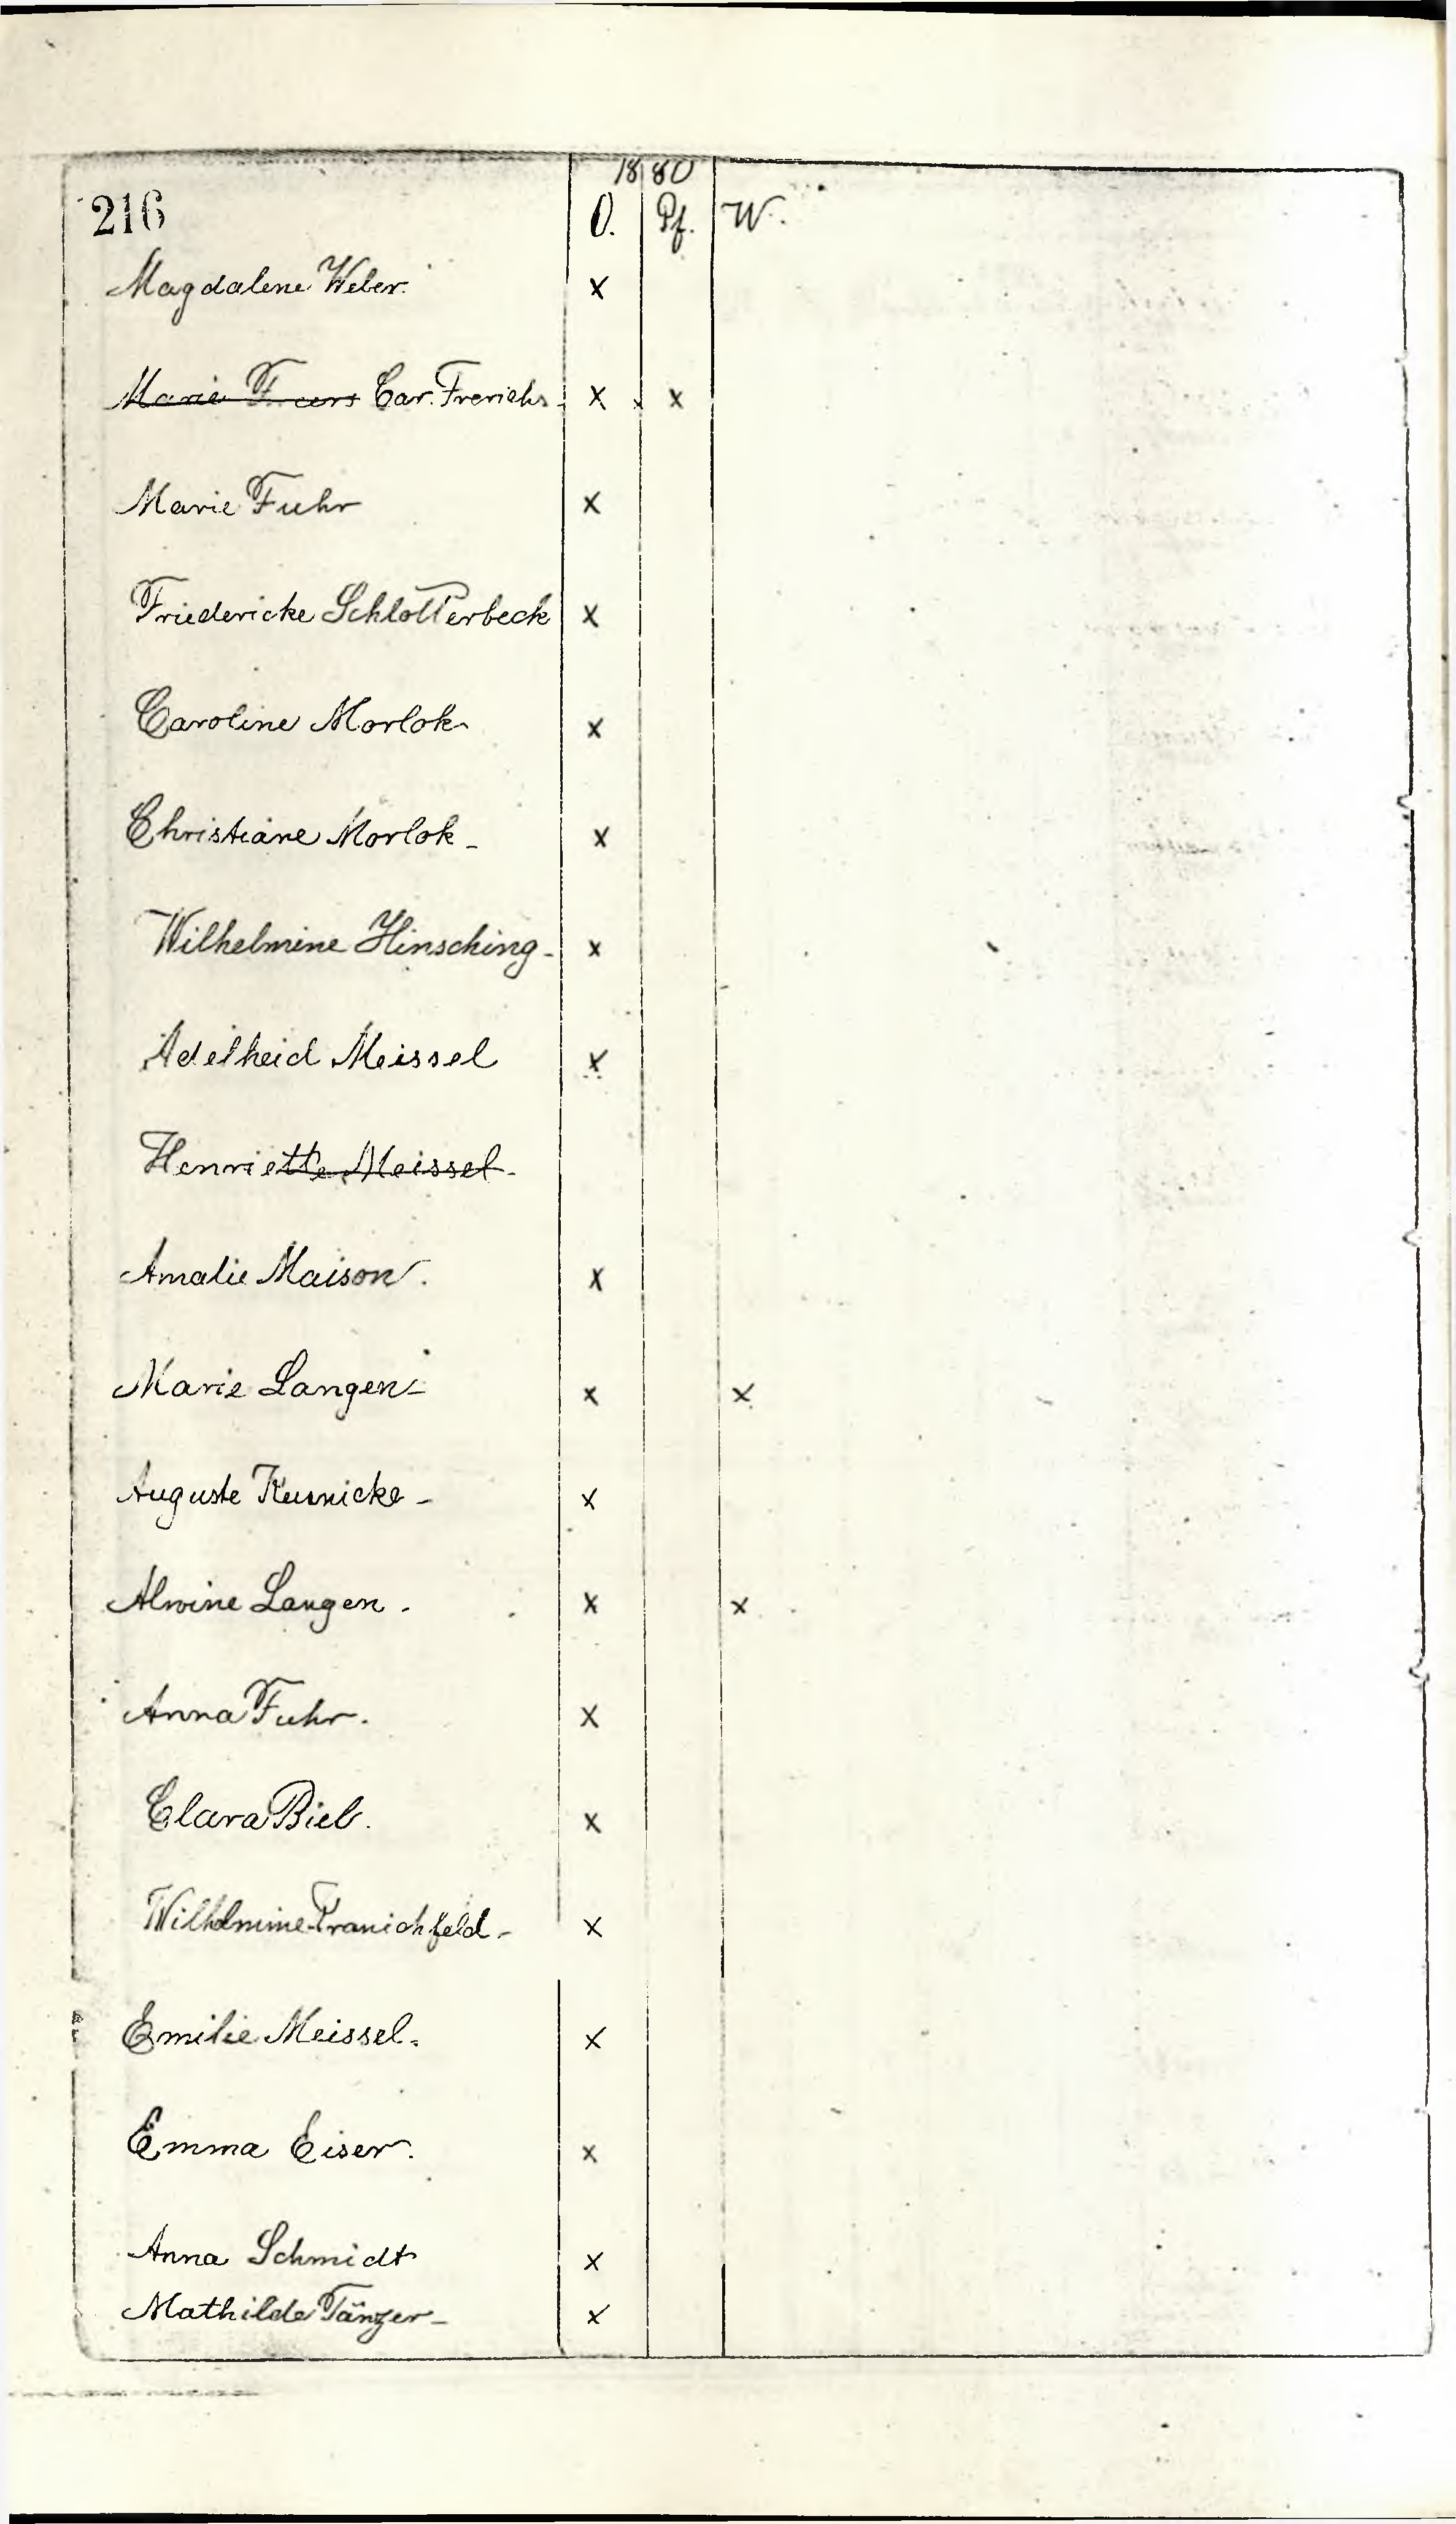 1880
216 O. Pf. W.
Magdalene Weber. x
Marie Car. Frerichs. x x
Marie Fuhr x
Friedericke Schlotterbeck x
Caroline Morlok x
Christiane Morlok - x
Wilhelmine Hinsching - x
Adelheid Meissel x
Henriette Meissel -
Amalie Maison. x
Marie Langen - x x
Auguste - x
Alwine Langen. x x
Anna Fuhr. x
Clara Bieb. x
Wilhelmine Kranichfeld - x
Emilie Meissel. x
Emma Eiser. x
Anna Schmidt x
Mathilde Tänzer - x